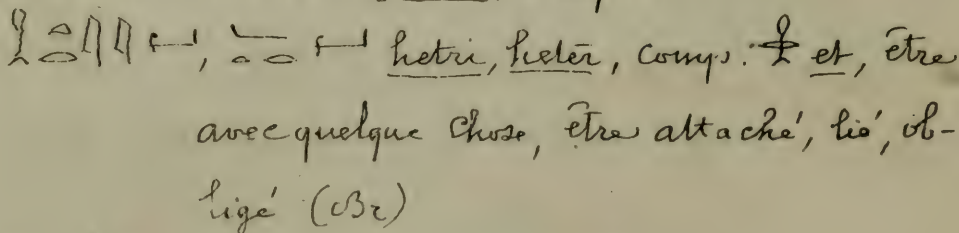 hetri, heter, comp. et, être
avec quelque chose, être attaché, lié, ob-
ligé (Br)